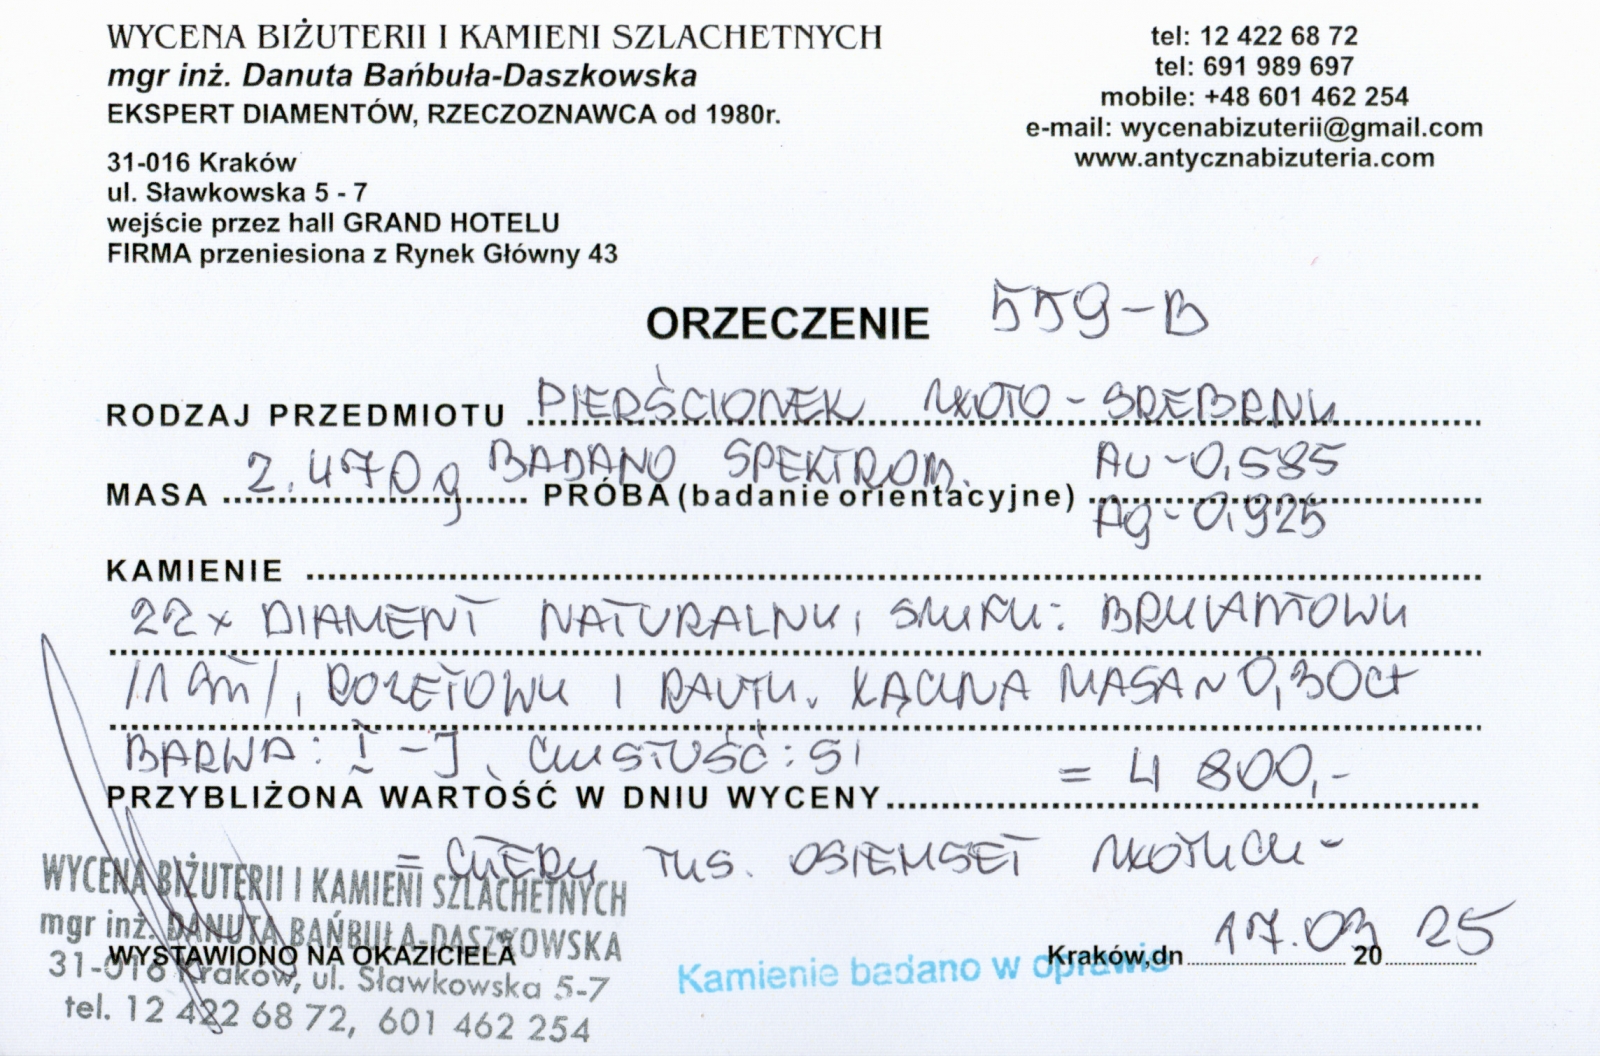 WYCENA BIŻUTERII I KAMIENI SZLACHETNYCH
mgr inż. Danuta Bańbuła-Daszkowska
EKSPERT DIAMENTÓW, RZECZOZNAWCA od 1980r.
31-016 Kraków
ul. Sławkowska 5 - 7
wejście przez hall GRAND HOTELU
FIRMA przeniesiona z Rynek Główny 43
tel: 12 422 68 72
tel: 691 989 697
mobile: +48 601 462 254
e-mail: wycenabizuterii@gmail.com
www.antycznabizuteria.com
ORZECZENIE 559-B
RODZAJ PRZEDMIOTU PIERŚCIONEK ZŁOTO - SREBRNY
MASA 2.470g BADANO SPEKTROM. PRÓBA (badanie orientacyjne) Au - 0,585
Ag - 0,925
KAMIENIE
22 x DIAMENT NATURALNY, SZLIFY: BRYLANTOWY
ROZETOWY I RAUTY. ŁĄCZNA MASA ~ 0,30ct
BARWA: I - J, CZYSTOŚĆ: SI = 4 800,-
PRZYBLIŻONA WARTOŚĆ W DNIU WYCENY
= CZTERY TYS. OSIEMSET ZŁOTYCH -
WYCENA BIŻUTERII I KAMIENI SZLACHETNYCH
mgr inż. DANUTA BAŃBUŁA-DASZKOWSKA
WYSTAWIONO NA OKAZICIELA
31-016 Kraków, ul. Sławkowska 5-7
tel. 12 422 68 72, 601 462 254
Kraków,dn 17.03 20 25
Kamienie badano w oprawie